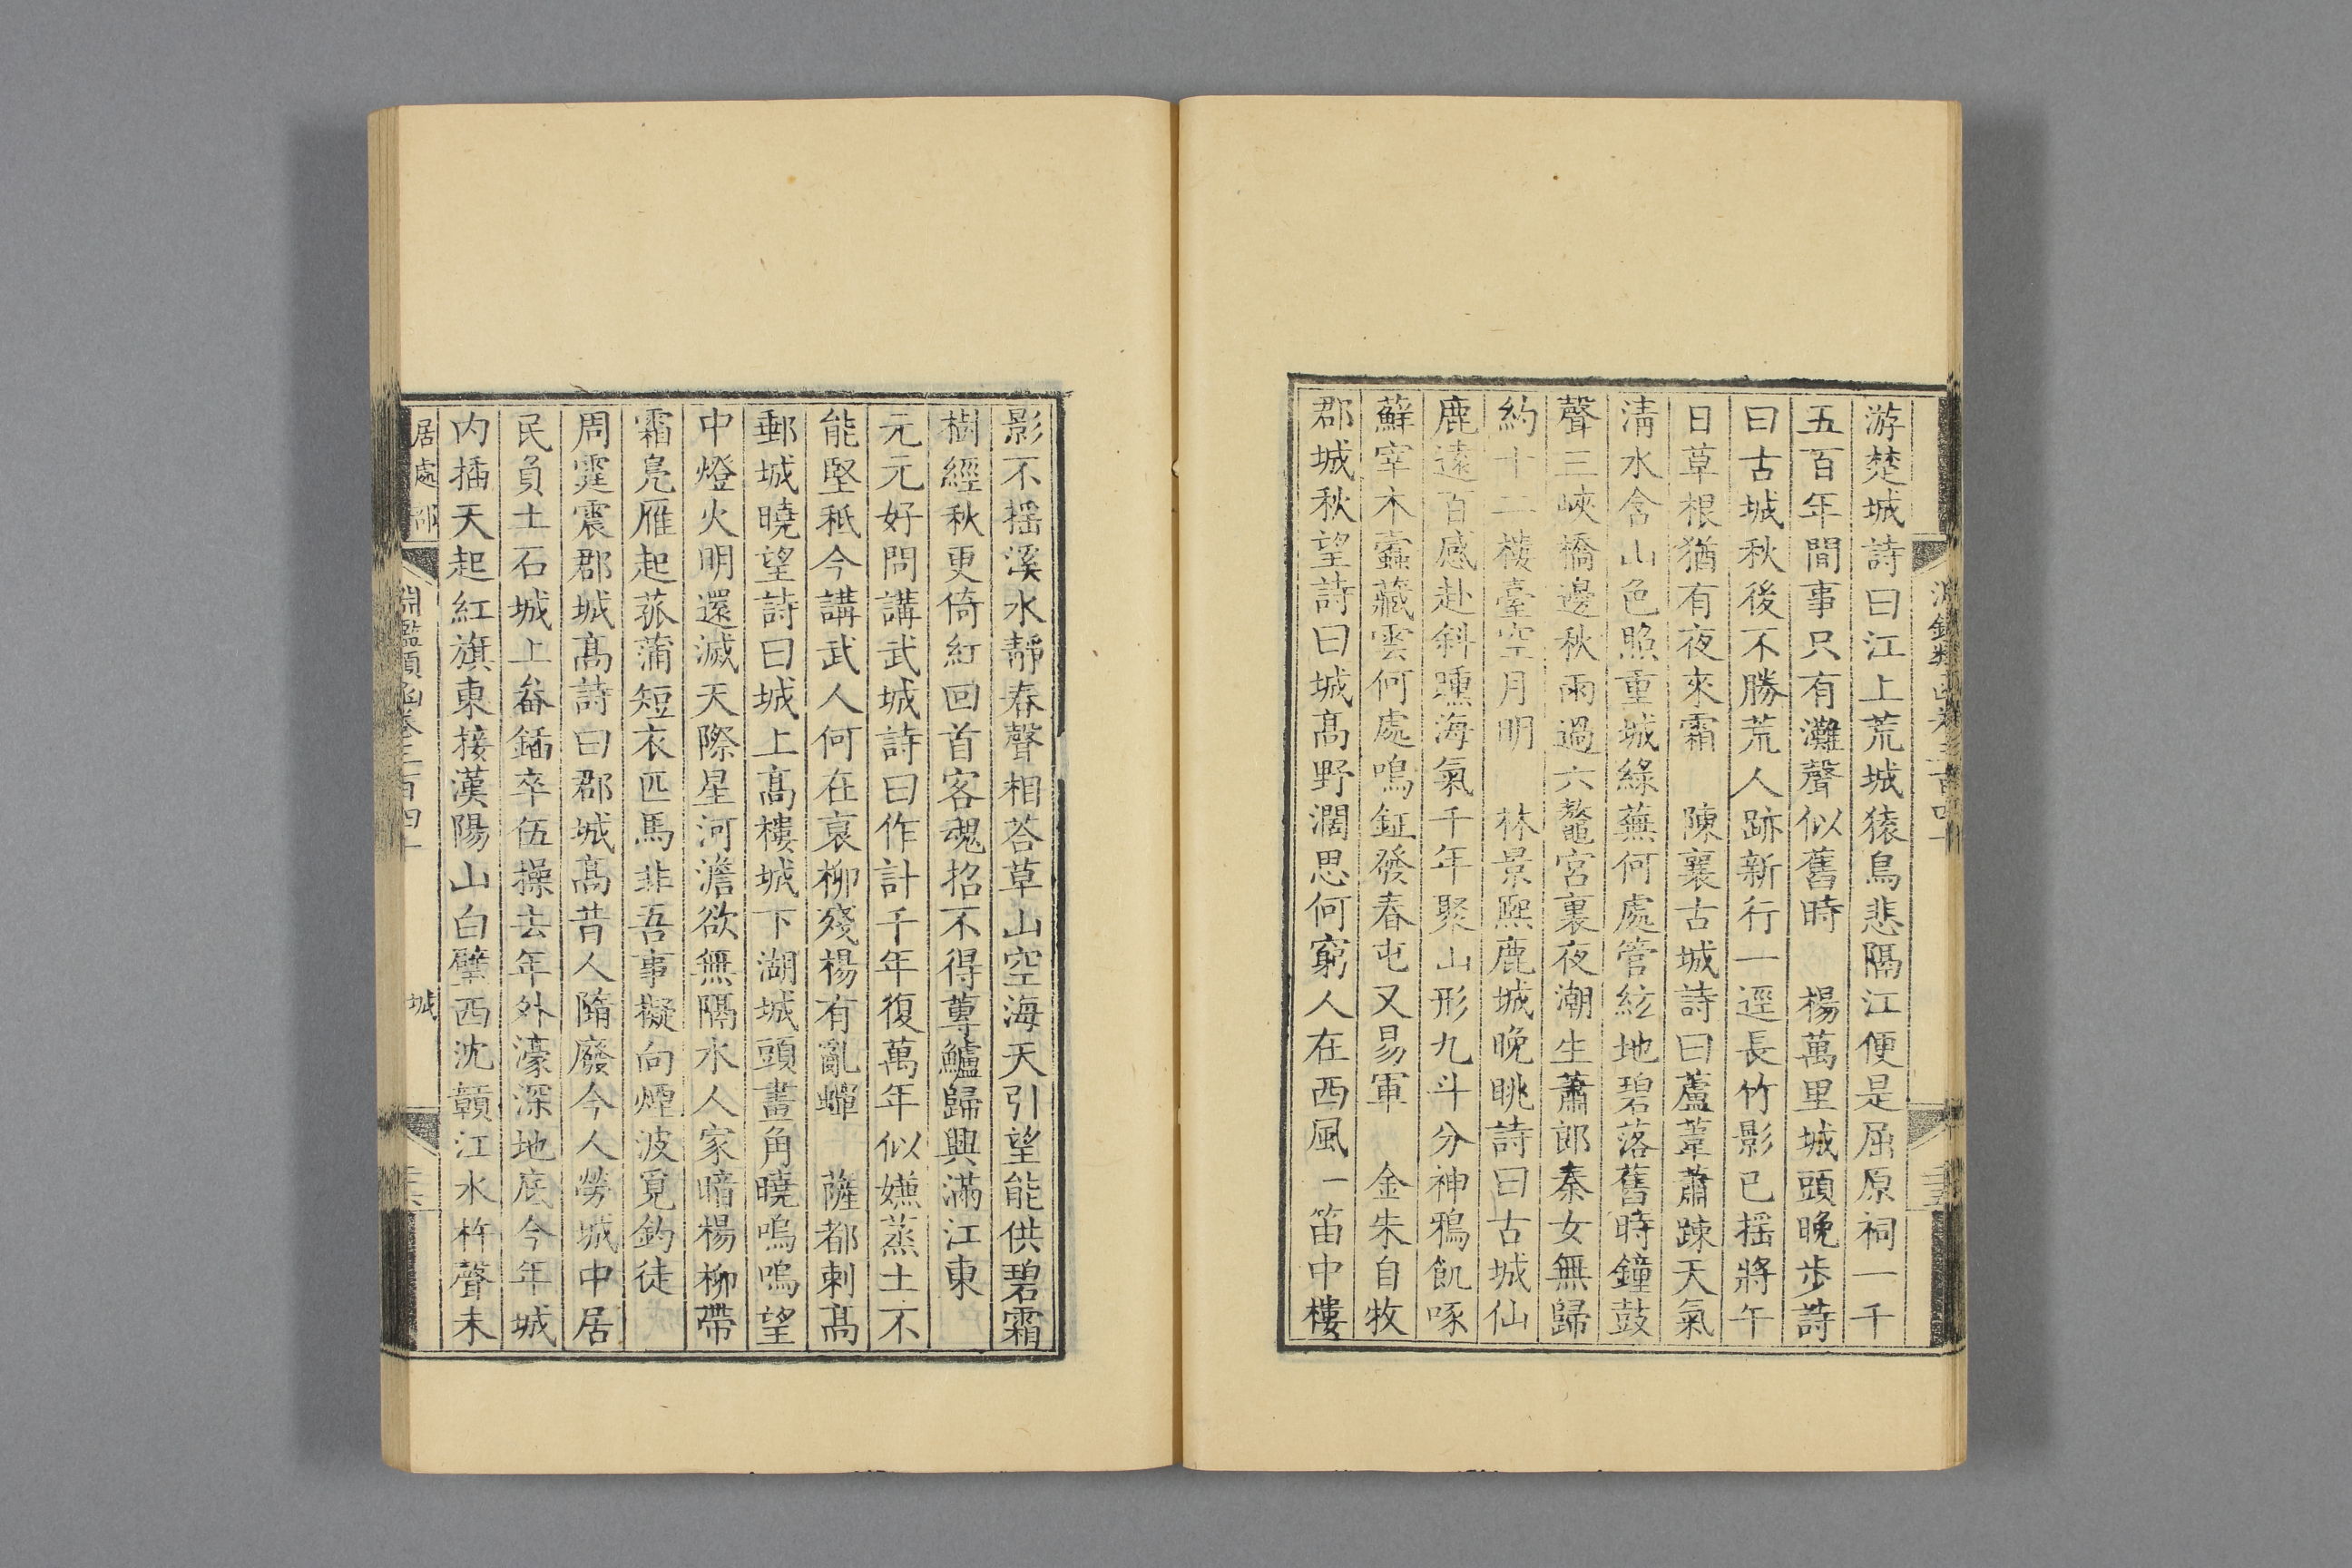 游楚城詩曰江上荒城猿鳥悲隔江便是屈原祠一千
五百年間事只有灘聲似舊時　楊萬里城頭晚步詩
曰古城秋後不勝荒人跡新行一逕長竹影已搖將午
日草根猶有夜來霜　陳襄古城詩曰蘆葦蕭踈天氣
清水含山色照重城綠蕪何處管絃地碧落舊時鐘鼓
聲三峽橋邊秋雨過六鼇宮裏夜潮生蕭郎秦女無歸
約十二樓臺空月明　林景熙鹿城晚眺詩曰古城仙
鹿遠百感赴斜曛海氣千年聚山形九斗分神鴉飢啄
蘚宰木蠹藏雲何處鳴鉦發春屯又易軍　金朱自牧
郡城秋望詩曰城髙野濶思何窮人在西風一笛中樓
影不揺溪水靜春聲相荅草山空海天引望能供碧霜
樹經秋更倚紅回首客魂招不得蓴鱸歸興滿江東
元元好問講武城詩曰作計千年復萬年似嫌蒸土不
能堅秪今講武人何在衰柳殘楊有亂蟬　薩都剌髙
郵城曉望詩曰城上髙樓城下湖城頭畫角曉嗚嗚望
中燈火明還滅天際星河澹欲無隔水人家暗楊柳帶
霜鳧雁起菰蒲短衣匹馬非吾事擬向煙波覓釣徒
周霆震郡城髙詩曰郡城髙昔人隳廢今人勞城中居
民負土石城上畚鍤卒伍操去年外濠深地底今年城
内插天起紅旗東接漢陽山白壁西沈贛江水杵聲未
居處部
淵鑑類函卷三百四十
城